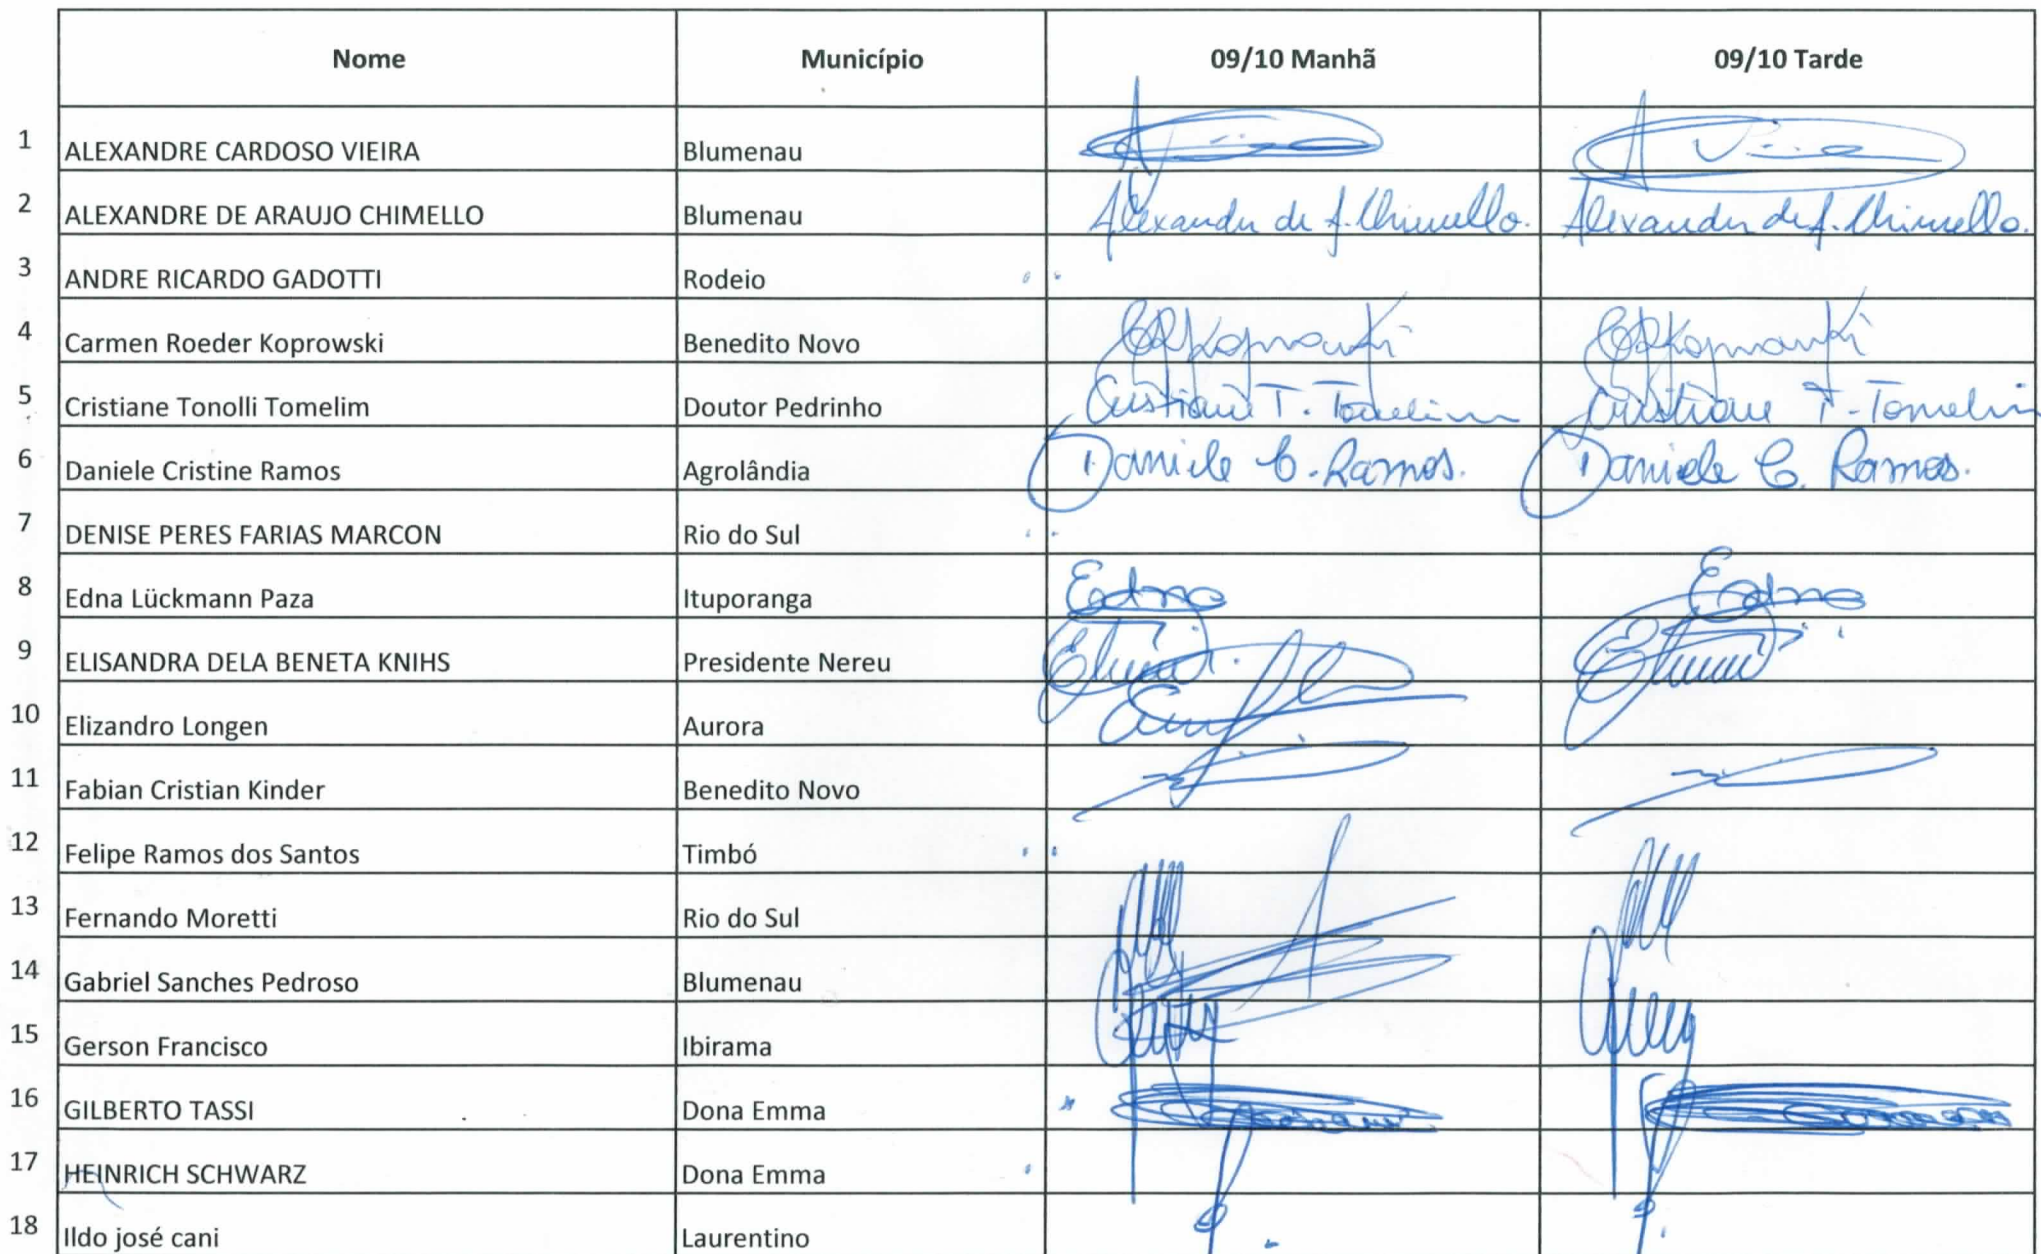 Nome Município 09/10 Manhã 09/10 Tarde
1 ALEXANDRE CARDOSO VIEIRA Blumenau
2 ALEXANDRE DE ARAUJO CHIMELLO Blumenau Alexandre de A. Chimello. Alexandre de A. Chimello.
3 ANDRE RICARDO GADOTTI Rodeio
4 Carmen Roeder Koprowski Benedito Novo CRKoprowski CRKoprowski
5 Cristiane Tonolli Tomelim Doutor Pedrinho Cristiane T. Tomelim Cristiane T. Tomelin
6 Daniele Cristine Ramos Agrolândia Daniele C. Ramos. Daniele C. Ramos.
7 DENISE PERES FARIAS MARCON Rio do Sul
8 Edna Lückmann Paza Ituporanga Edna Edna
9 ELISANDRA DELA BENETA KNIHS Presidente Nereu
10 Elizandro Longen Aurora
11 Fabian Cristian Kinder Benedito Novo
12 Felipe Ramos dos Santos Timbó
13 Fernando Moretti Rio do Sul
14 Gabriel Sanches Pedroso Blumenau
15 Gerson Francisco Ibirama
16 GILBERTO TASSI Dona Emma
17 HEINRICH SCHWARZ Dona Emma
18 Ildo josé cani Laurentino